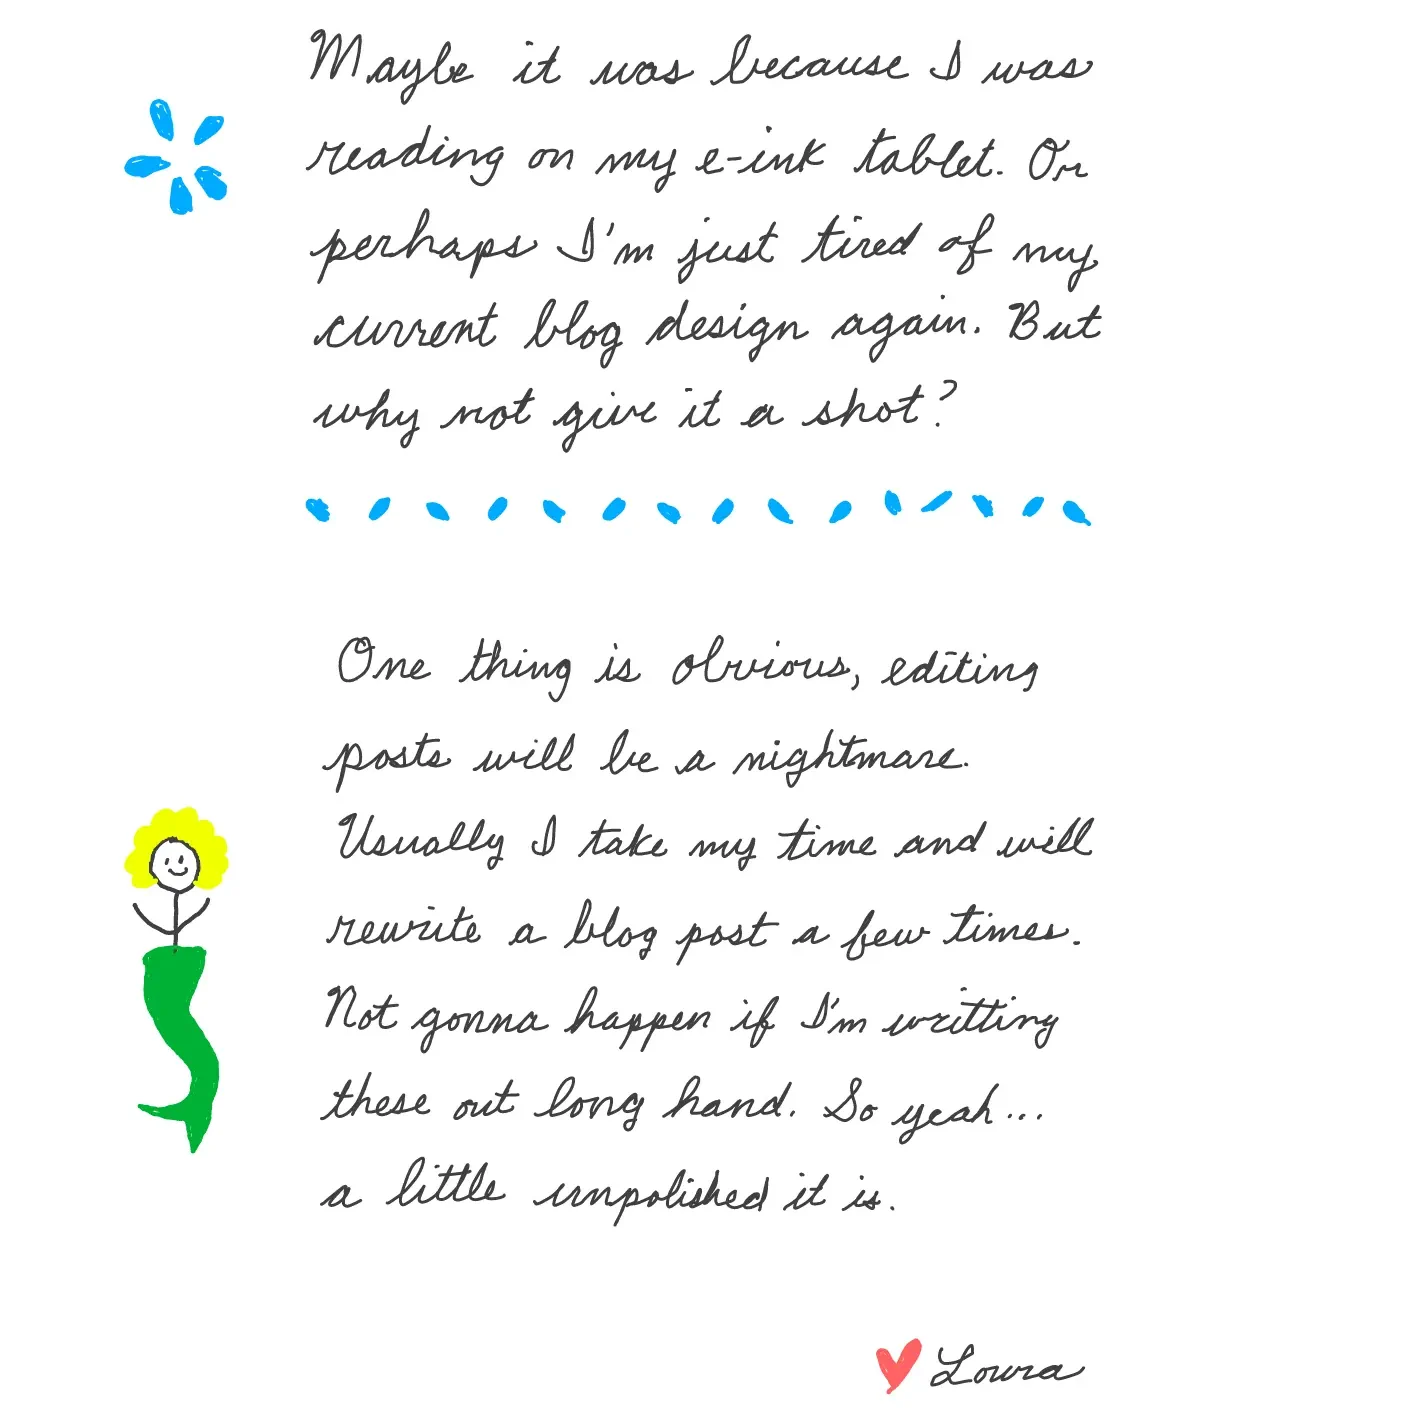 Maybe it was because I was
reading on my e-ink tablet. Or
perhaps I'm just tired of my
current blog design again. But
why not give it a shot?
One thing is obvious, editing
posts will be a nightmare.
Usually I take my time and will
rewrite a blog post a few times.
Not gonna happen if I'm writting
these out long hand. So yeah...
a little unpolished it is.
Loura